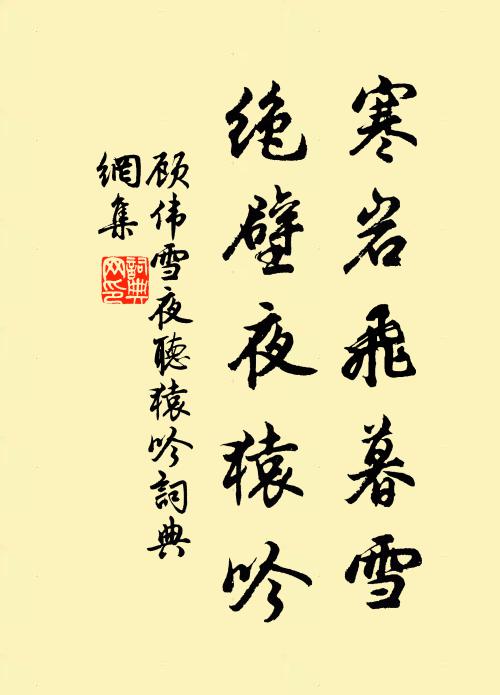 寒岩飛暮雪
绝壁夜猿吟
顾伟雪夜聽猿吟詞典
網集
詞典
网印